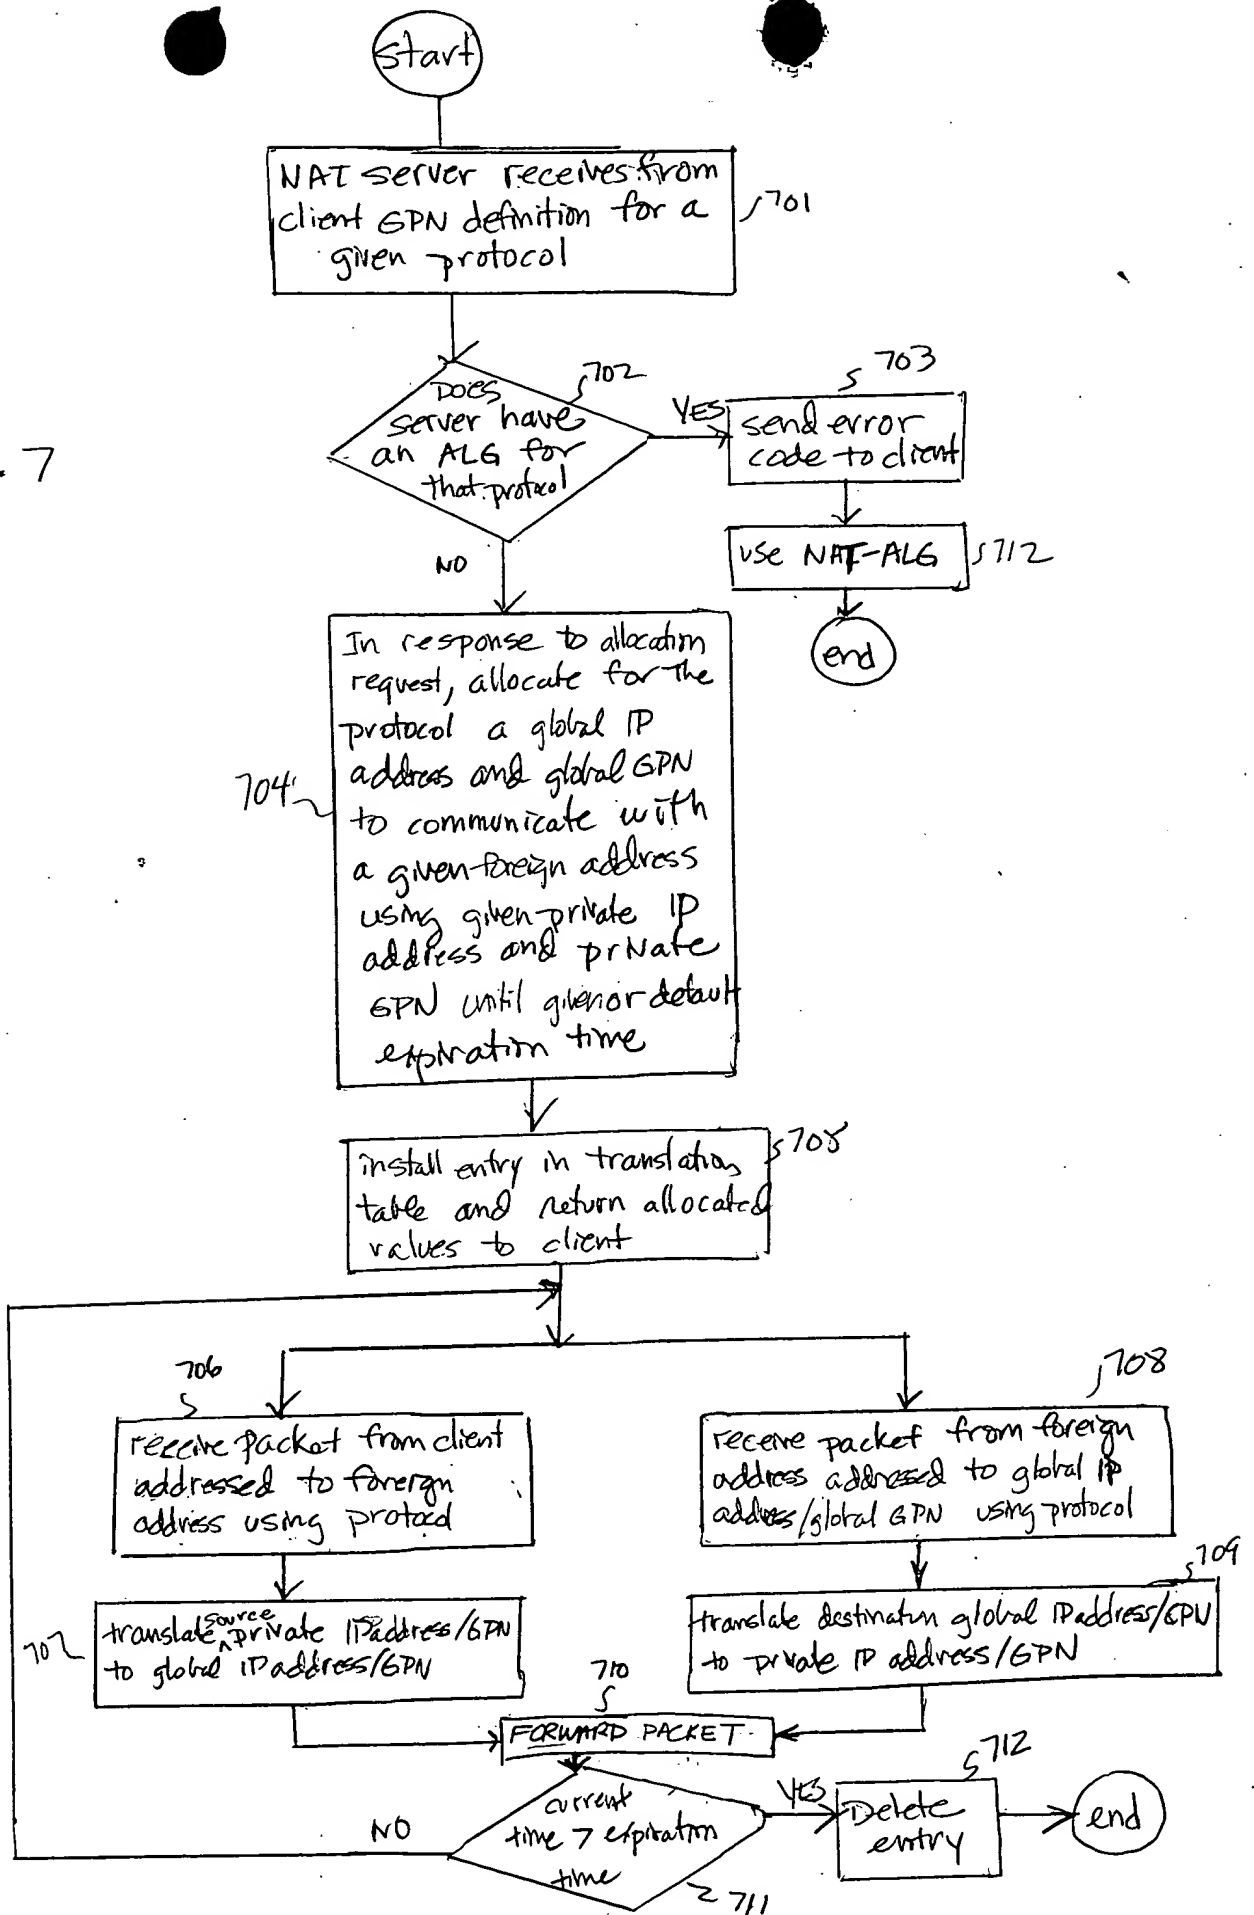 start
NAT server receives from
client GPN definition for a
given protocol
701
702
Does
server have
an ALG for
that protocol
YES
703
send error
code to client
. 7
NO
use NAT-ALG
712
end
In response to allocation
request, allocate for the
protocol a global IP
address and global GPN
704
to communicate with
a given foreign address
using given private IP
address and private
GPN until given or default
expiration time
705
install entry in translation
table and return allocated
values to client
706
708
receive packet from client
addressed to foreign
address using protocol
receive packet from foreign
address addressed to global IP
address/global GPN using protocol
709
707
translate source private IP address/GPN
to global IP address/GPN
translate destination global IP address/GPN
to private IP address/GPN
710
FORWARD PACKET
712
NO
current
time > expiration
time
YES
Delete
entry
end
711